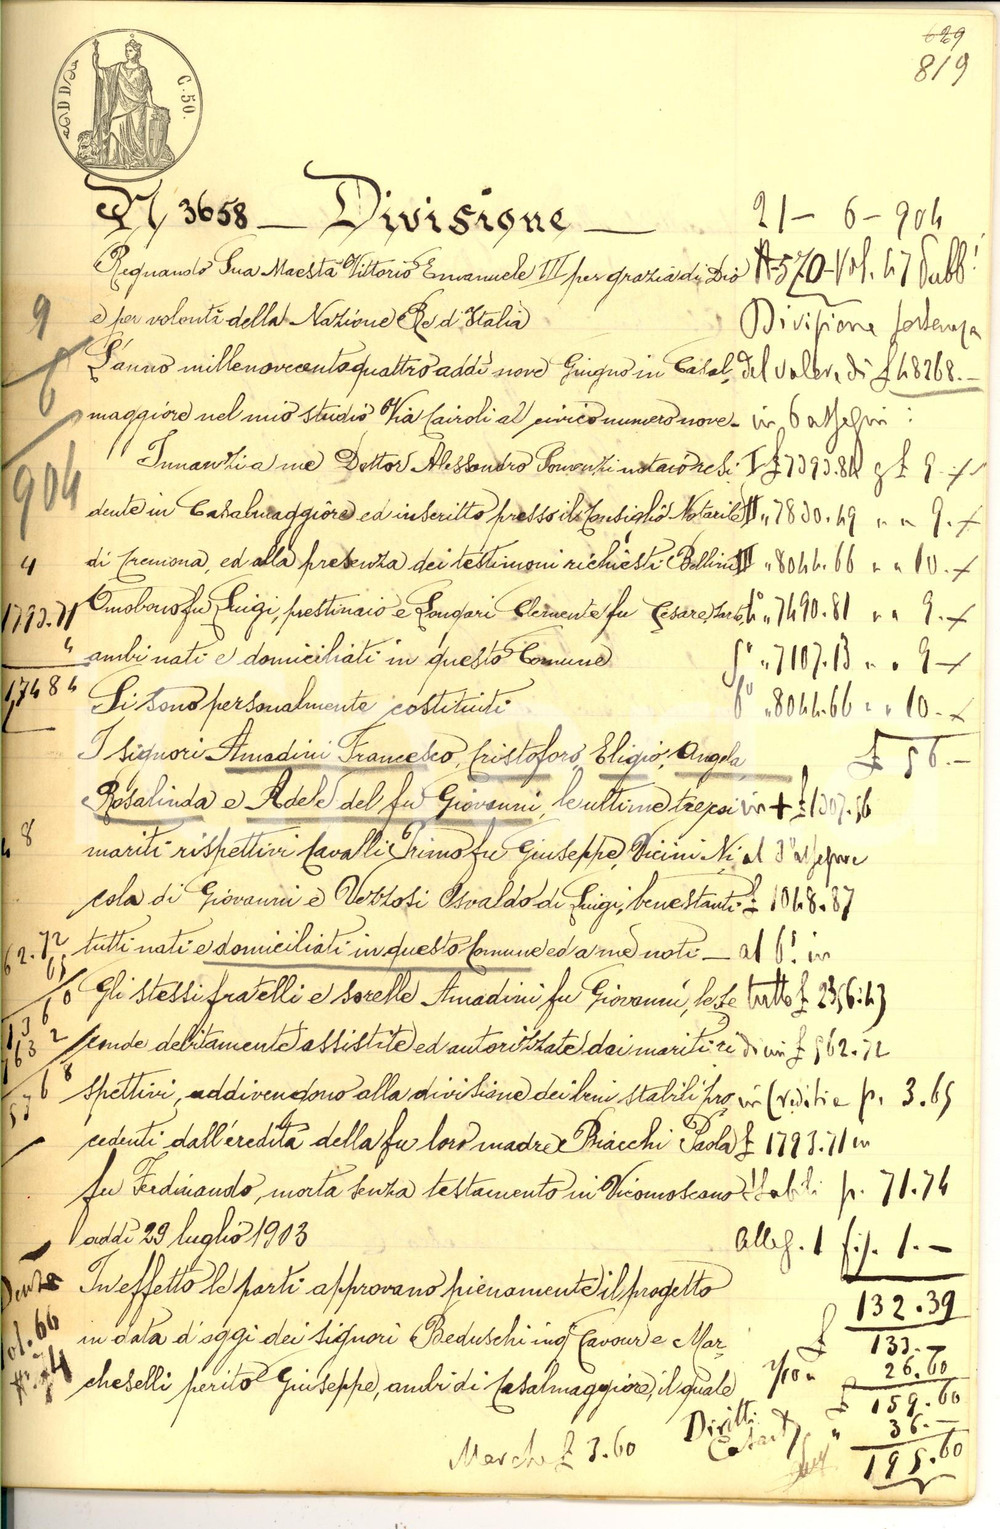 629
819
C. 50.
N 3658 — Divisione —
Regnando Sua Maestà Vittorio Emanuele III per grazia di Dio
e per volontà della Nazione Re d'Italia
L'anno millenovecentoquattro addì nove Giugno in Casal
maggiore nel mio studio Via Cairoli al civico numero nove.
Innanzi a me Dottor Alessandro notaio resi
dente in Casalmaggiore ed inscritto presso il Consiglio Notarile
di Cremona, ed alla presenza dei testimoni richiesti Bollini
Omobono fu Luigi, prestinaio e Longari Clemente fu Cesare,
ambi nati e domiciliati in questo Comune
Si sono personalmente costituiti
I signori Amadini Francesco, Cristoforo, Eligio, Angela
Rosalinda e Adele del fu Giovanni, le ultime tre coi
mariti rispettivi Cavalli Primo fu Giuseppe, Vicini Ni
cola di Giovanni e Vezzosi Osvaldo di Luigi, benestanti
tutti nati e domiciliati in questo Comune ed a me noti —
Gli stessi fratelli e sorelle Amadini fu Giovanni, le se
conde debitamente assistite ed autorizzate dai mariti ri
spettivi, addivengono alla divisione dei beni stabili pro
cedenti dall'eredità della fu loro madre Biacchi Paola
fu Ferdinando, morta senza testamento in Vicomoscano
addì 29 luglio 1903
In effetto le parti approvano pienamente il progetto
in data d'oggi dei signori Beduschi ing Cavour e Mar
cheselli perito Giuseppe, ambi di Casalmaggiore, il quale
Marche £ 3.60
21 - 6 - 904
N. 570 Vol. 47 Pubb!
Divisione
del valore di £ 48268.—
in 6 assegni:
I £ 7393.84 £ 9.
II „ 7830.49 „ „ 9.
III „ 8044.66 „ „ 10.
„ 7490.81 „ „ 9.
5° „ 7107.13 „ „ 9
6° „ 8044.66 „ „ 10.
£ 56.—
in + £ 1307.56
al 3° assegno
£ 1048.87
al 6° in
tutto £ 2356.43
di cui £ 562.72
in Crediti p. 3.65
£ 1793.71 in
stabili p. 71.74
Alleg. 1 fis. 1.—
132.39
£ 133.—
26.60
£ 159.60
Diritti
Catast
„ 36.—
195.60
9
6
904
4
1793.71
4
7174 84
8
62.72
65
60
136
Vol. 66